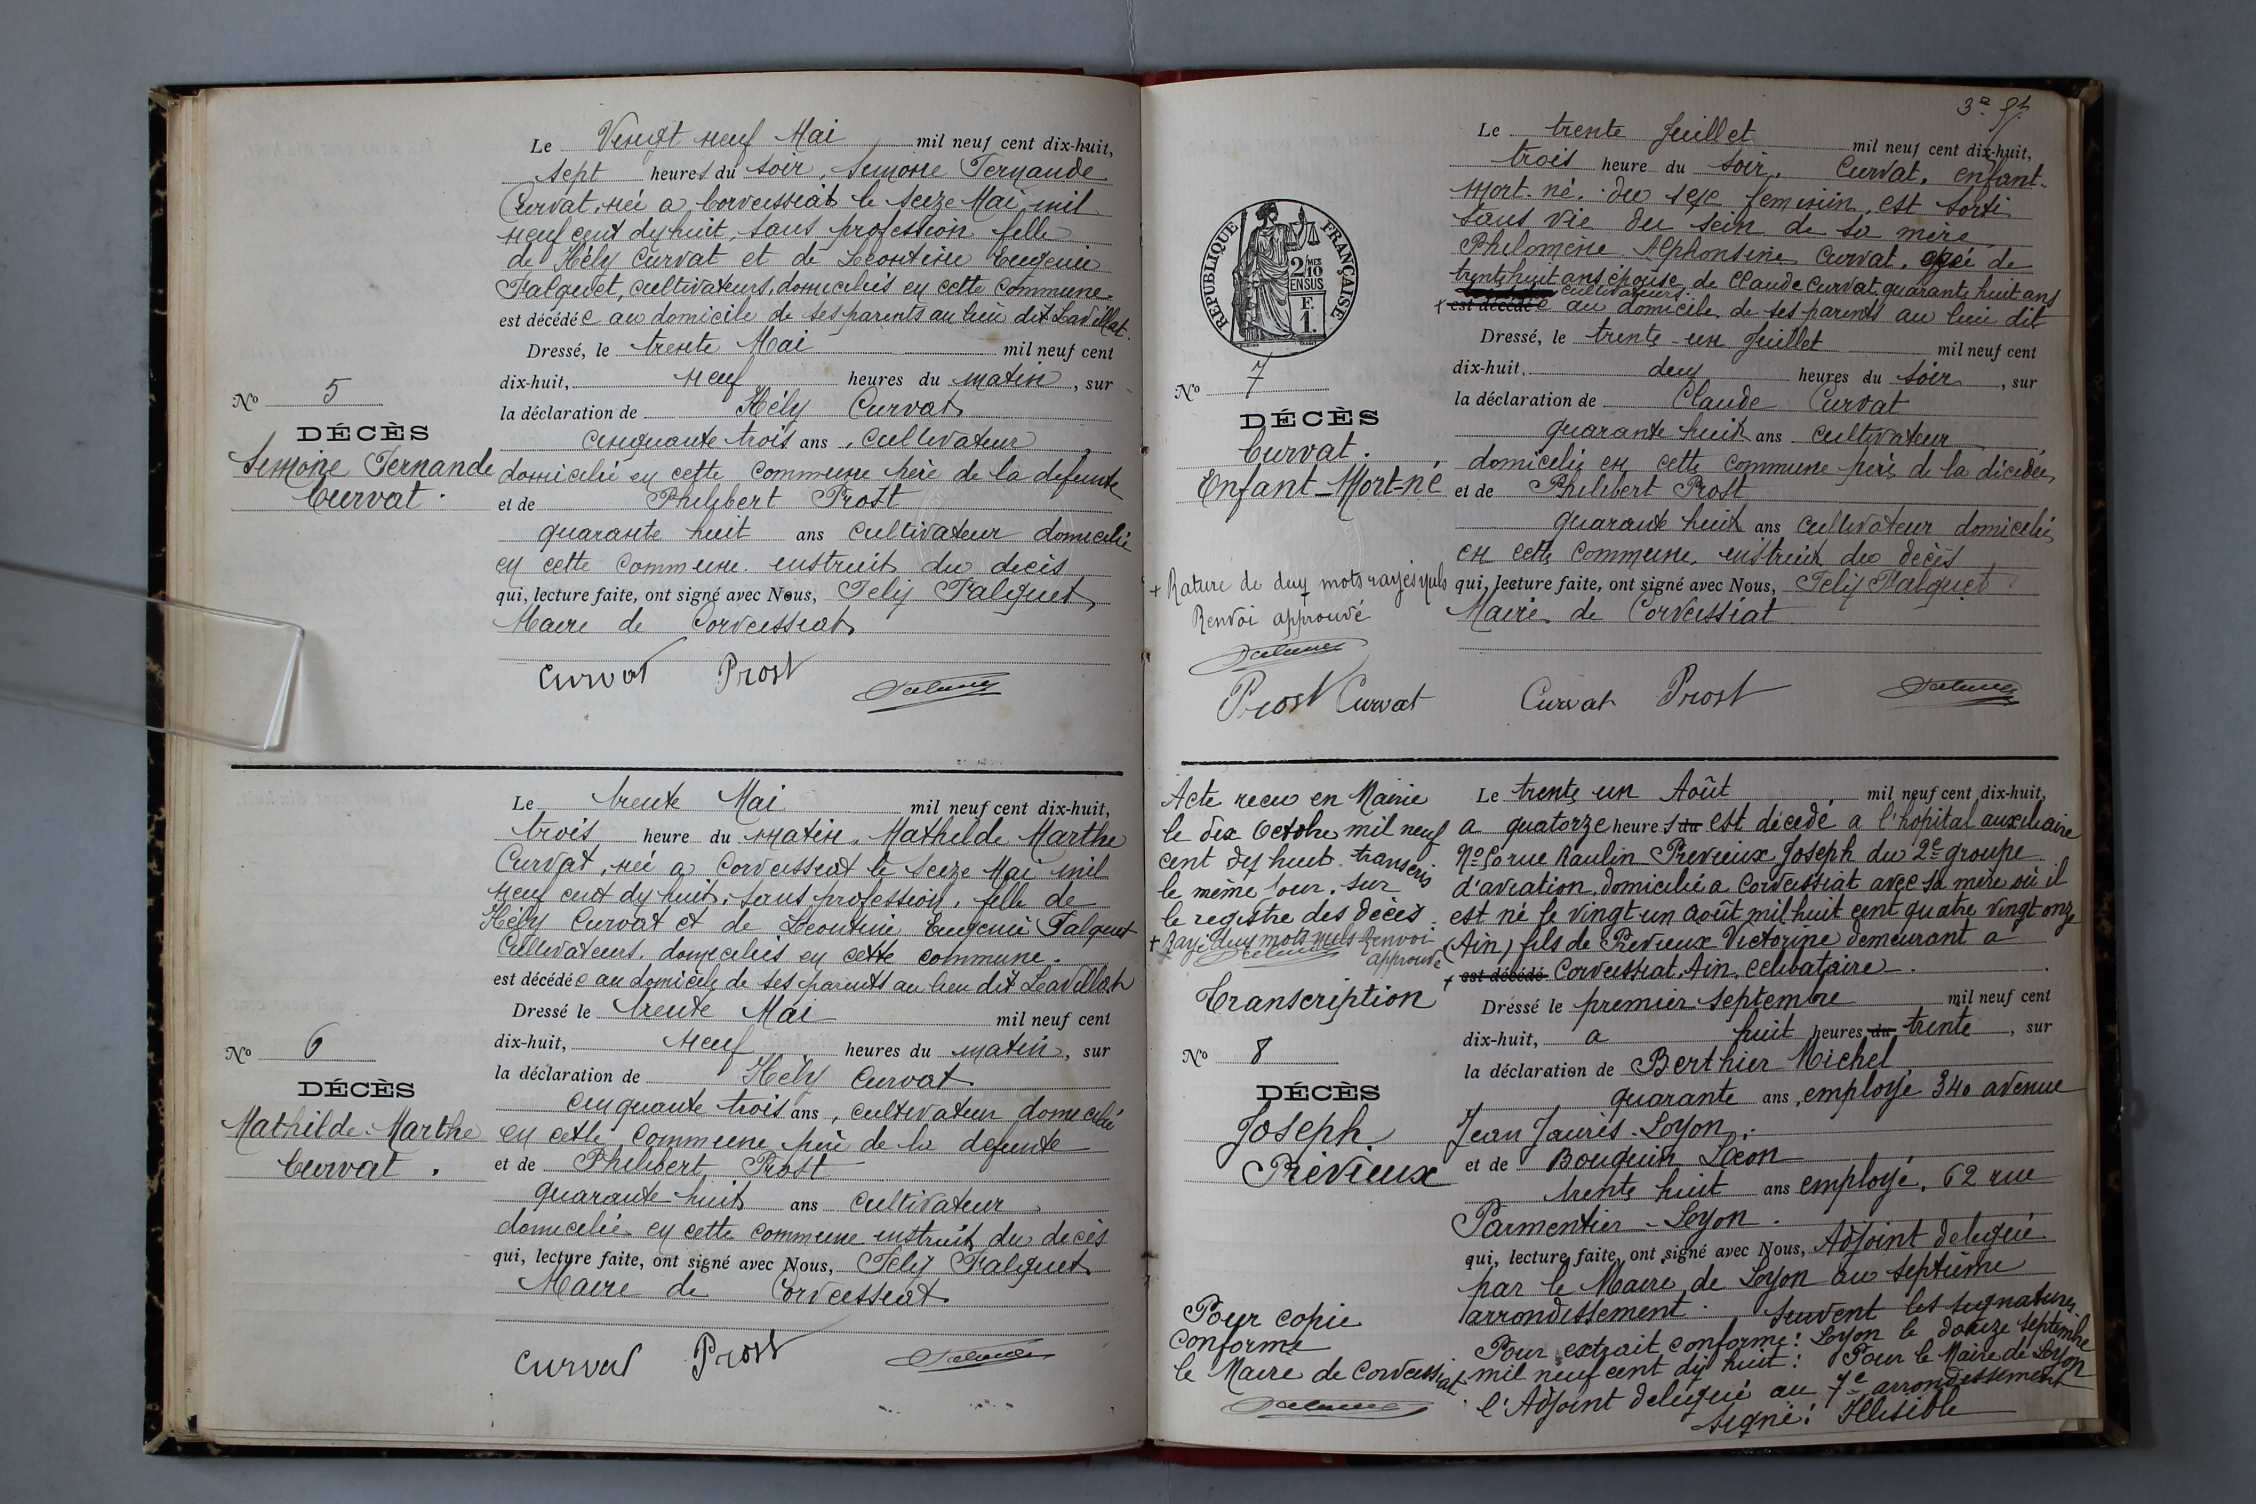 Le Vingt neuf Mai mil neuf cent dix-huit,
sept heures du soir, Simone Fernande
Curvat, née a Corveissiat le seize Mai mil
neuf cent dix huit, sans profession fille
de Hély Curvat et de Léontine Eugenie
Falquet, cultivateurs, domiciliés en cette commune
est décédée au domicile de ses parents au lieu dit Lavillat.
Dressé, le trente Mai mil neuf cent
dix-huit, neuf heures du matin, sur
la déclaration de Hély Curvat
cinquante trois ans, cultivateur
domicilié en cette commune père de la defunte
et de Philibert Prost
quarante huit ans cultivateur domicilié
en cette commune instruit du décès
qui, lecture faite, ont signé avec Nous, Felix Falquet
Maire de Corveissiat
Curvat Prost
No 5
DÉCÈS
Simone Fernande
Curvat.
Le trente Mai mil neuf cent dix-huit,
trois heure du matin, Mathilde Marthe
Curvat, née a Corveissiat le seize Mai mil
neuf cent dix huit, sans profession, fille de
Hély Curvat et de Léontine Eugenie Falquet
Cultivateurs, domiciliés en cette commune.
est décédée au domicile de ses parents au lieu dit Leavillat
Dressé le trente Mai mil neuf cent
dix-huit, neuf heures du matin, sur
la déclaration de Hély Curvat
cinquante trois ans, cultivateur domicilié
en cette commune père de la defunte
et de Philibert Prost
quarante huit ans cultivateur
domicilié en cette commune instruit du décès
qui, lecture faite, ont signé avec Nous, Felix Falquet
Maire de Corveissiat
Curvat Prost
No 6
DÉCÈS
Mathilde-Marthe
Curvat.
3e
Le trente Juillet mil neuf cent dix-huit,
trois heure du soir, Curvat, enfant-
mort-né, du sexe feminin, est sorti
sans vie du sein de sa mère
Philomène Alphonsine Curvat, agée de
trente huit ans épouse de Claude Curvat quarante huit ans
cultivateurs
+ est décédée au domicile de ses parents au lieu dit
Dressé, le trente-un Juillet mil neuf cent
dix-huit, deux heures du soir, sur
la déclaration de Claude Curvat
quarante huit ans cultivateur
domicilié en cette commune père de la décédée,
et de Philibert Prost
quarante huit ans cultivateur domicilié
en cette commune, instruit du décès
qui, lecture faite, ont signé avec Nous, Felix Falquet
Maire de Corveissiat
Curvat Prost
RÉPUBLIQUE FRANÇAISE
2/10 MES
EN SUS
1 F.
No 7
DÉCÈS
Curvat.
Enfant-Mort-né
+ Rature de deux mots rayés nuls
Renvoi approuvé
Prost Curvat
Le trente un Août mil neuf cent dix-huit,
a quatorze heures du est décédé a l'hopital auxiliaire
No rue Raulin Prévieux Joseph du 2e groupe
d'aviation, domicilié a Corveissiat avec sa mère où il
est né le vingt un août mil huit cent quatre vingt onze
(Ain) fils de Prévieux Victorine demeurant a
+ est décédé Corveissiat, Ain, Celibataire.
Dressé le premier septembre mil neuf cent
dix-huit, a huit heures du trente, sur
la déclaration de Berthier Michel
quarante ans, employé 340 avenue
Jean Jauris. Lyon.
et de Bouquin Léon
trente huit ans employé, 62 rue
Parmentier-Lyon.
qui, lecture faite, ont signé avec Nous, Adjoint delegué
par le Maire de Lyon au septième
arrondissement. Suivent les signatures
Pour extrait conforme: Lyon le douze septembre
mil neuf cent dix huit: Pour le Maire de Lyon
l'Adjoint delegué au 7e arrondissement
signé: Illisible
Acte recu en Mairie
le dix Octobre mil neuf
cent dix huit. transcris
le même jour. sur
le registre des décès.
+ Rayé deux mots nuls Renvoi
approuvé
Transcription
No 8
DÉCÈS
Joseph
Prévieux
Pour copie
conforme
le Maire de Corveissiat.